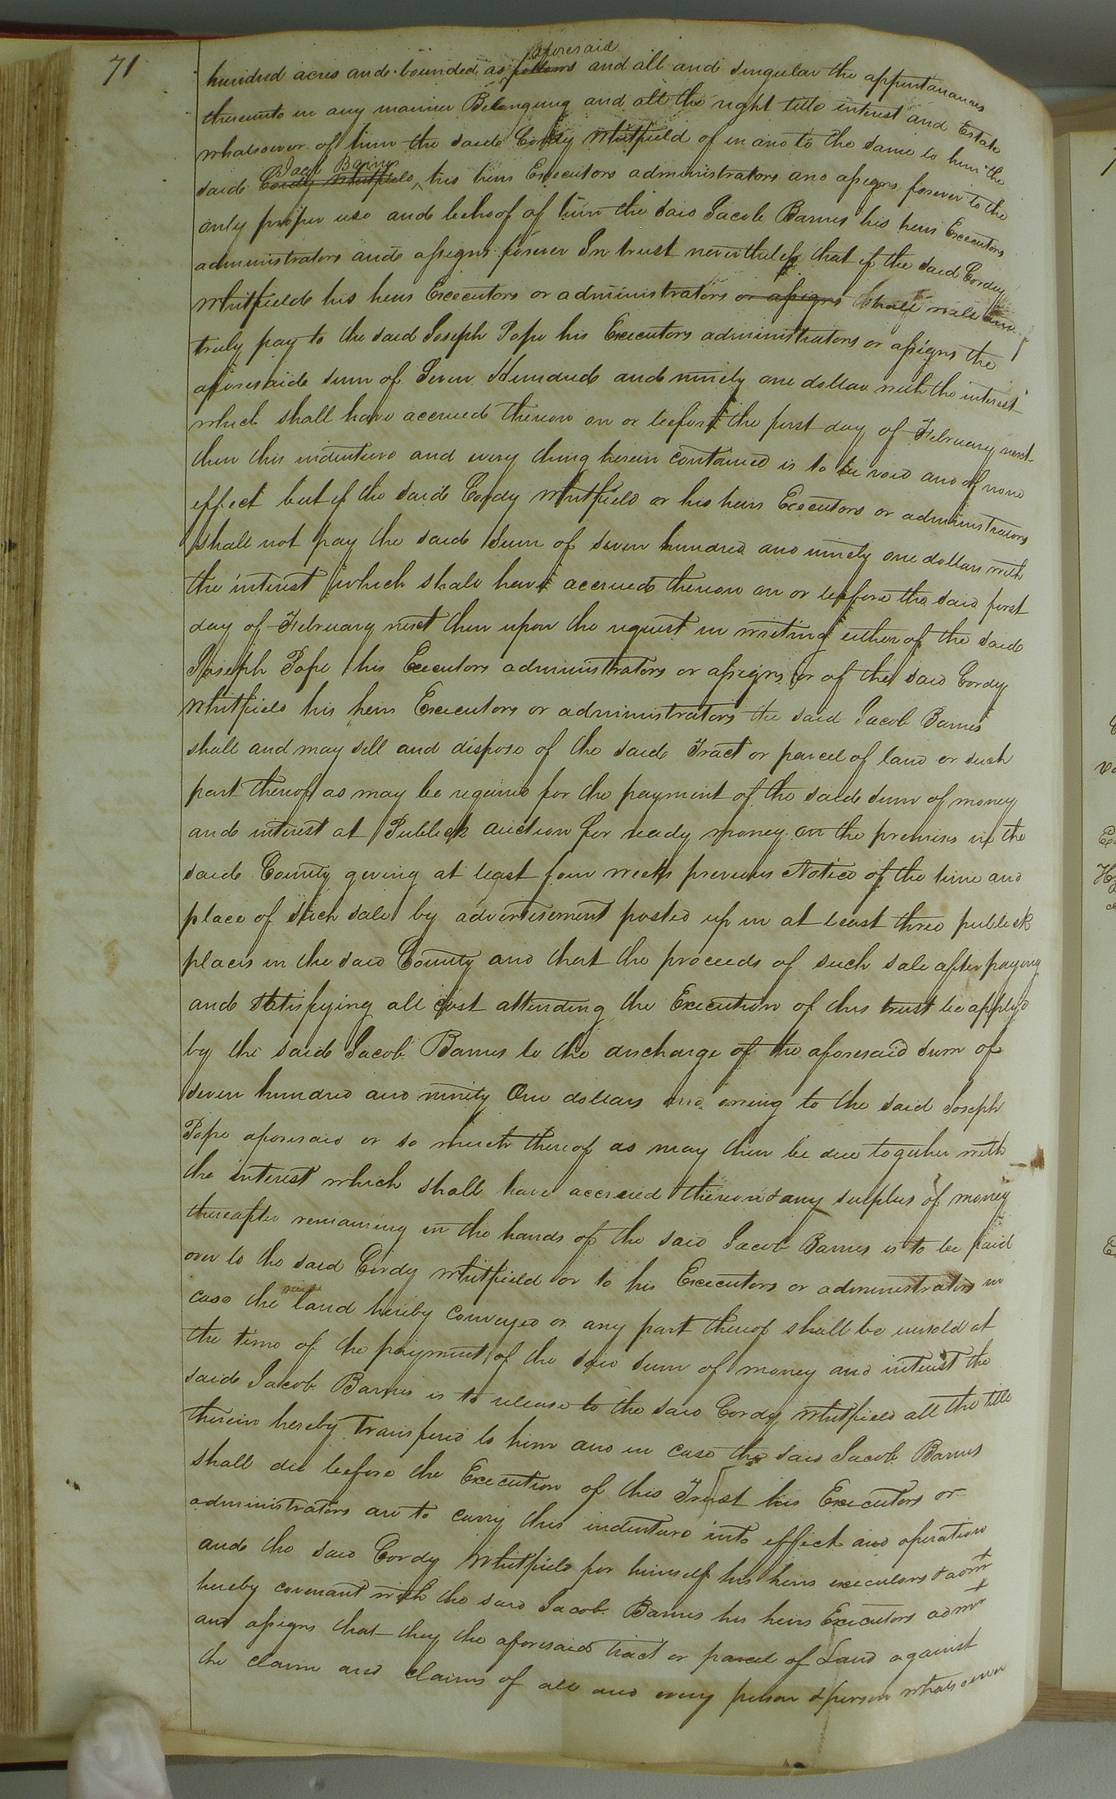 71
aforesaid
hundred acres and bounded as follows and all and singular the appurtanances
thereunto in any manner Belonging and all the right title interest and Estate
whatsoever of him the said Cordy Whitfield of in and to the same to him the
Jacob Barnes
said Cordy Whitfield his heirs Executors administrators and assigns forever to the
only proper use and behoof of him the said Jacob Barnes his heirs Executors
administrators and assigns forever In trust nevertheless that if the said Cordy
Whitfield his heirs Executors or administrators or assigns shall well and
truly pay to the said Joseph Pope his Executors administrators or assigns the
aforesaid sum of Seven Hundred and ninety one dollar with the interest
which shall have accrued thereon on or before the first day of February next
then this indenture and every thing herein contained is to be void and of none
effect but if the said Cordy Whitfield or his heirs Executors or administrators
shall not pay the said Sum of seven hundred and ninety one dollars with
the interest which shall have accrued thereon on or before the said first
day of February next then upon the request in writing either of the said
Joseph Pope his Executors administrators or assigns or of the said Cordy
Whitfield his heirs Executors or administrators the said Jacob Barnes
shall and may sell and dispose of the said Tract or parcel of land or such
part thereof as may be required for the payment of the said sum of money
and interest at Publick auction for ready money on the premises in the
said County giving at least four weeks previous Notice of the time and
place of such sale by advertisement posted up in at least three publick
places in the said County and that the proceeds of such sale after paying
and satisfying all cost attending the Execution of this trust be applyd
by the said Jacob Barnes to the discharge of the aforesaid sum of
seven hundred and ninity One dollars and owing to the said Joseph
Pope aforesaid or so much thereof as may then be due together with
the interest which shall have accrued thereon & any surplus of money
thereafter remaining in the hands of the said Jacob Barnes is to be paid
over to the said Cordy Whitfield or to his Executors or administrators in
said
case the land hereby conveyed or any part thereof shall be unsold at
the time of the payment of the said sum of money and interest the
said Jacob Barnes is to release to the said Cordy Whitfield all the title
therein hereby transfered to him and in case the said Jacob Barnes
shall die before the Execution of this Trust his Executors or
administrators are to carry this indenture into effect and operation
and the said Cordy Whitfield for himself his heirs executors & admr
hereby covenant with the said Jacob Barnes his heirs Executors admr
and assigns that they the aforesaid tract or parcel of Land against
the claim and claims of all and every person & person whatsoever